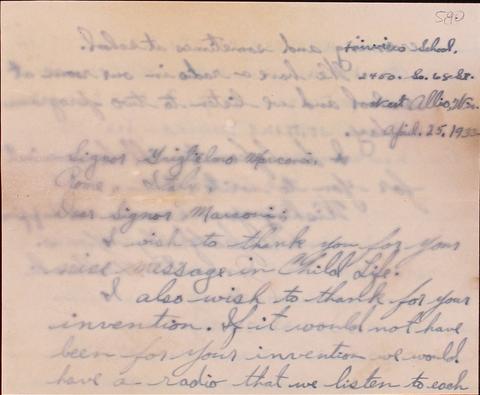 590
Fairview School.
2450. So. 68 St.
West Allis, Wis.
April. 25, 1933
Signor Guglielmo Marconi.
Rome, Italy
Dear Signor Marconi:
I wish to thank you for your
nice message in Child Life.
I also wish to thank for your
invention. If it would not have
been for your invention we would
have a radio that we listen to each